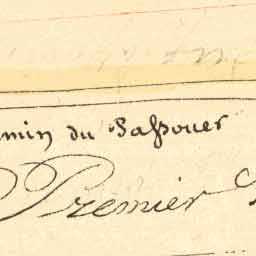 min du Passouer
Premier